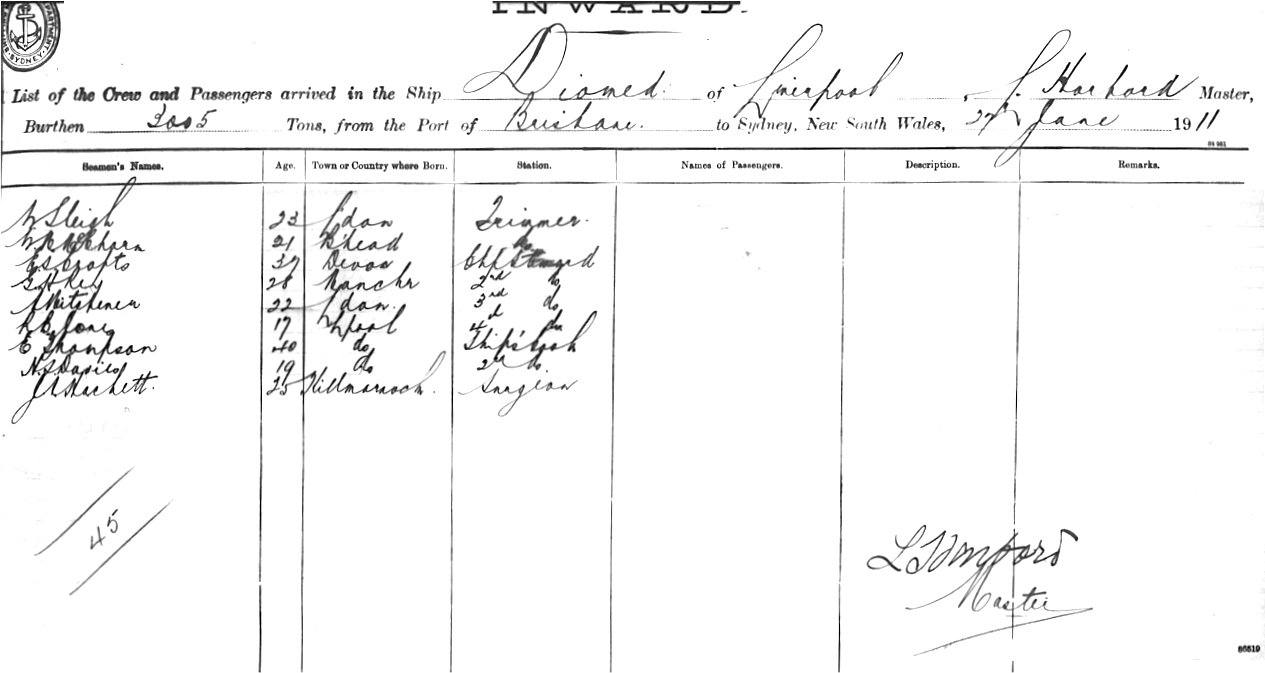 INWARD.
DEPARTMENT. SYDNEY.
List of the Crew and Passengers arrived in the Ship Diomed. of Liverpool, Master,
Burthen 3005 Tons, from the Port of Brisbane. to Sydney, New South Wales, 27 June 1911
84 981
Seamen's Names. Age. Town or Country where Born. Station. Names of Passengers. Description. Remarks.
W Sleigh 23 L'don Trimmer.
21 B'head do
E.S. Crofts 37 Devon Chf Steward
G H Key 28 Manchr 2nd do
Kitchener 22 L'don. 3rd do
17 L'pool 4th do
E Thompson 40 do Ship's Cook
N.S. Davies 19 do 2nd do
Hackett. 25 Killmarnock. Surgeon
45
Master
86519